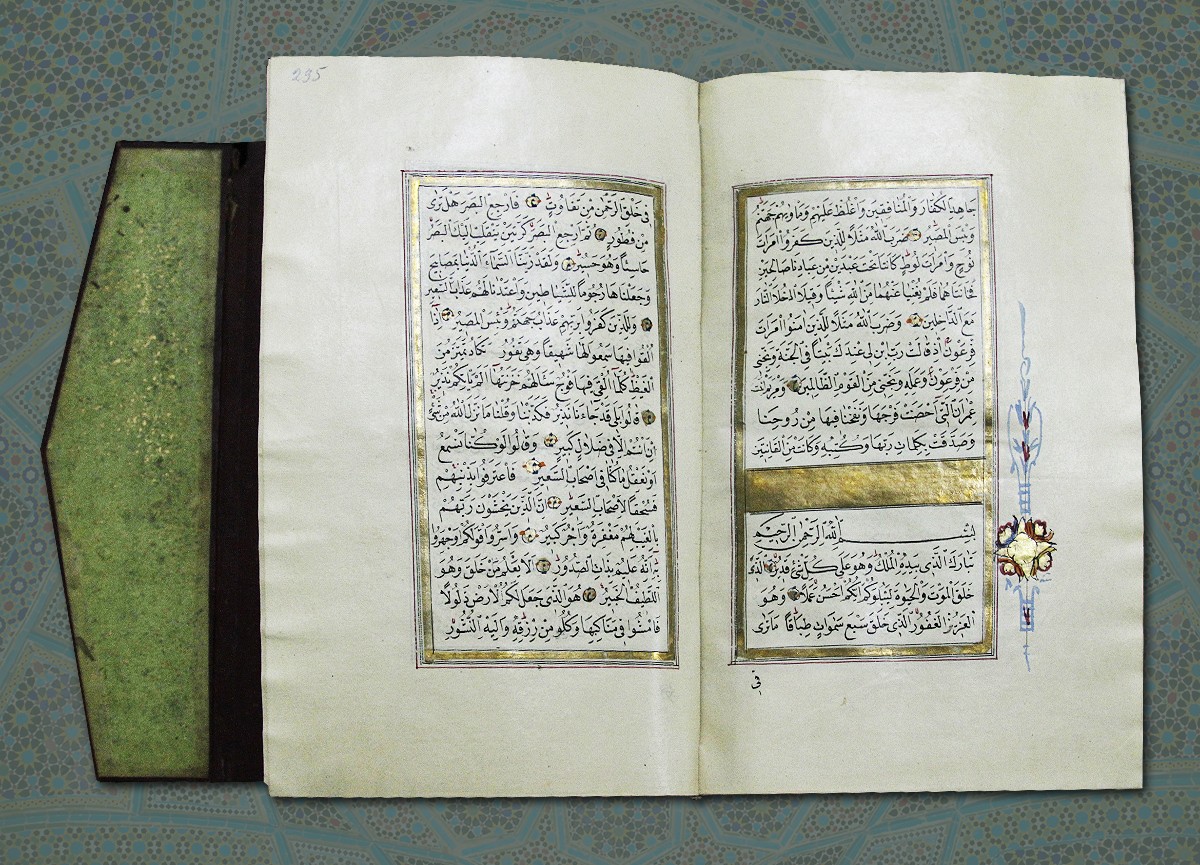 جَاهِدِ الْكُفَّارَ وَالْمُنَافِقِينَ وَاغْلُظْ عَلَيْهِمْ وَمَاْوٰيهُمْ جَهَنَّمُ
وَبِئْسَ الْمَصِيرُ ضَرَبَ اللّٰهُ مَثَلًا لِلَّذِينَ كَفَرُوا امْرَاَتَ
نُوحٍ وَامْرَاَتَ لُوطٍ كَانَتَا تَحْتَ عَبْدَيْنِ مِنْ عِبَادِنَا صَالِحَيْنِ
فَخَانَتَاهُمَا فَلَمْ يُغْنِيَا عَنْهُمَا مِنَ اللّٰهِ شَيْئًا وَقِيلَ ادْخُلَا النَّارَ
مَعَ الدَّاخِلِينَ وَضَرَبَ اللّٰهُ مَثَلًا لِلَّذِينَ اٰمَنُوا امْرَاَتَ
فِرْعَوْنَ اِذْ قَالَتْ رَبِّ ابْنِ لِي عِنْدَكَ بَيْتًا فِي الْجَنَّةِ وَنَجِّنِي
مِنْ فِرْعَوْنَ وَعَمَلِهِ وَنَجِّنِي مِنَ الْقَوْمِ الظَّالِمِينَ وَمَرْيَمَ ابْنَتَ
عِمْرَانَ الَّتِي اَحْصَنَتْ فَرْجَهَا فَنَفَخْنَا فِيهَا مِنْ رُوحِنَا
وَصَدَّقَتْ بِكَلِمَاتِ رَبِّهَا وَكُتُبِهِ وَكَانَتْ مِنَ الْقَانِتِينَ
بِسْمِ اللّٰهِ الرَّحْمٰنِ الرَّحِيمِ
تَبَارَكَ الَّذِي بِيَدِهِ الْمُلْكُ وَهُوَ عَلٰى كُلِّ شَيْءٍ قَدِيرٌ اَلَّذِي
خَلَقَ الْمَوْتَ وَالْحَيٰوةَ لِيَبْلُوَكُمْ اَيُّكُمْ اَحْسَنُ عَمَلًا وَهُوَ
الْعَزِيزُ الْغَفُورُ الَّذِي خَلَقَ سَبْعَ سَمٰوَاتٍ طِبَاقًا مَا تَرٰى
فِي
235
فِي خَلْقِ الرَّحْمٰنِ مِنْ تَفَاوُتٍ فَارْجِعِ الْبَصَرَ هَلْ تَرٰى
مِنْ فُطُورٍ ثُمَّ ارْجِعِ الْبَصَرَ كَرَّتَيْنِ يَنْقَلِبْ اِلَيْكَ الْبَصَرُ
خَاسِئًا وَهُوَ حَسِيرٌ وَلَقَدْ زَيَّنَّا السَّمَاءَ الدُّنْيَا بِمَصَابِيحَ
وَجَعَلْنَاهَا رُجُومًا لِلشَّيَاطِينِ وَاَعْتَدْنَا لَهُمْ عَذَابَ السَّعِيرِ
وَلِلَّذِينَ كَفَرُوا بِرَبِّهِمْ عَذَابُ جَهَنَّمَ وَبِئْسَ الْمَصِيرُ اِذَا
اُلْقُوا فِيهَا سَمِعُوا لَهَا شَهِيقًا وَهِيَ تَفُورُ تَكَادُ تَمَيَّزُ مِنَ
الْغَيْظِ كُلَّمَا اُلْقِيَ فِيهَا فَوْجٌ سَاَلَهُمْ خَزَنَتُهَا اَلَمْ يَاْتِكُمْ نَذِيرٌ
قَالُوا بَلٰى قَدْ جَاءَنَا نَذِيرٌ فَكَذَّبْنَا وَقُلْنَا مَا نَزَّلَ اللّٰهُ مِنْ شَيْءٍ
اِنْ اَنْتُمْ اِلَّا فِي ضَلَالٍ كَبِيرٍ وَقَالُوا لَوْ كُنَّا نَسْمَعُ
اَوْ نَعْقِلُ مَا كُنَّا فِي اَصْحَابِ السَّعِيرِ فَاعْتَرَفُوا بِذَنْبِهِمْ
فَسُحْقًا لِاَصْحَابِ السَّعِيرِ اِنَّ الَّذِينَ يَخْشَوْنَ رَبَّهُمْ
بِالْغَيْبِ لَهُمْ مَغْفِرَةٌ وَاَجْرٌ كَبِيرٌ وَاَسِرُّوا قَوْلَكُمْ اَوِ اجْهَرُوا
بِهِ اِنَّهُ عَلِيمٌ بِذَاتِ الصُّدُورِ اَلَا يَعْلَمُ مَنْ خَلَقَ وَهُوَ
اللَّطِيفُ الْخَبِيرُ هُوَ الَّذِي جَعَلَ لَكُمُ الْاَرْضَ ذَلُولًا
فَامْشُوا فِي مَنَاكِبِهَا وَكُلُوا مِنْ رِزْقِهِ وَاِلَيْهِ النُّشُورُ